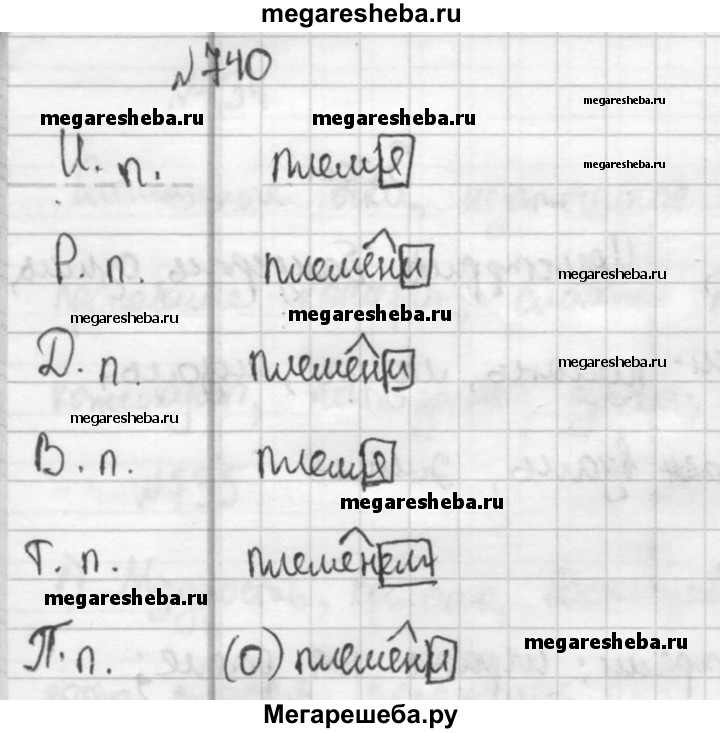 megaresheba.ru
№740
megaresheba.ru megaresheba.ru megaresheba.ru
И. п. племя megaresheba.ru
Р. п. племени megaresheba.ru
megaresheba.ru megaresheba.ru
Д. п. племени megaresheba.ru
megaresheba.ru
В. п. племя
megaresheba.ru
Т. п. племенем
megaresheba.ru
П. п. (о) племени megaresheba.ru
Мегарешеба.ру